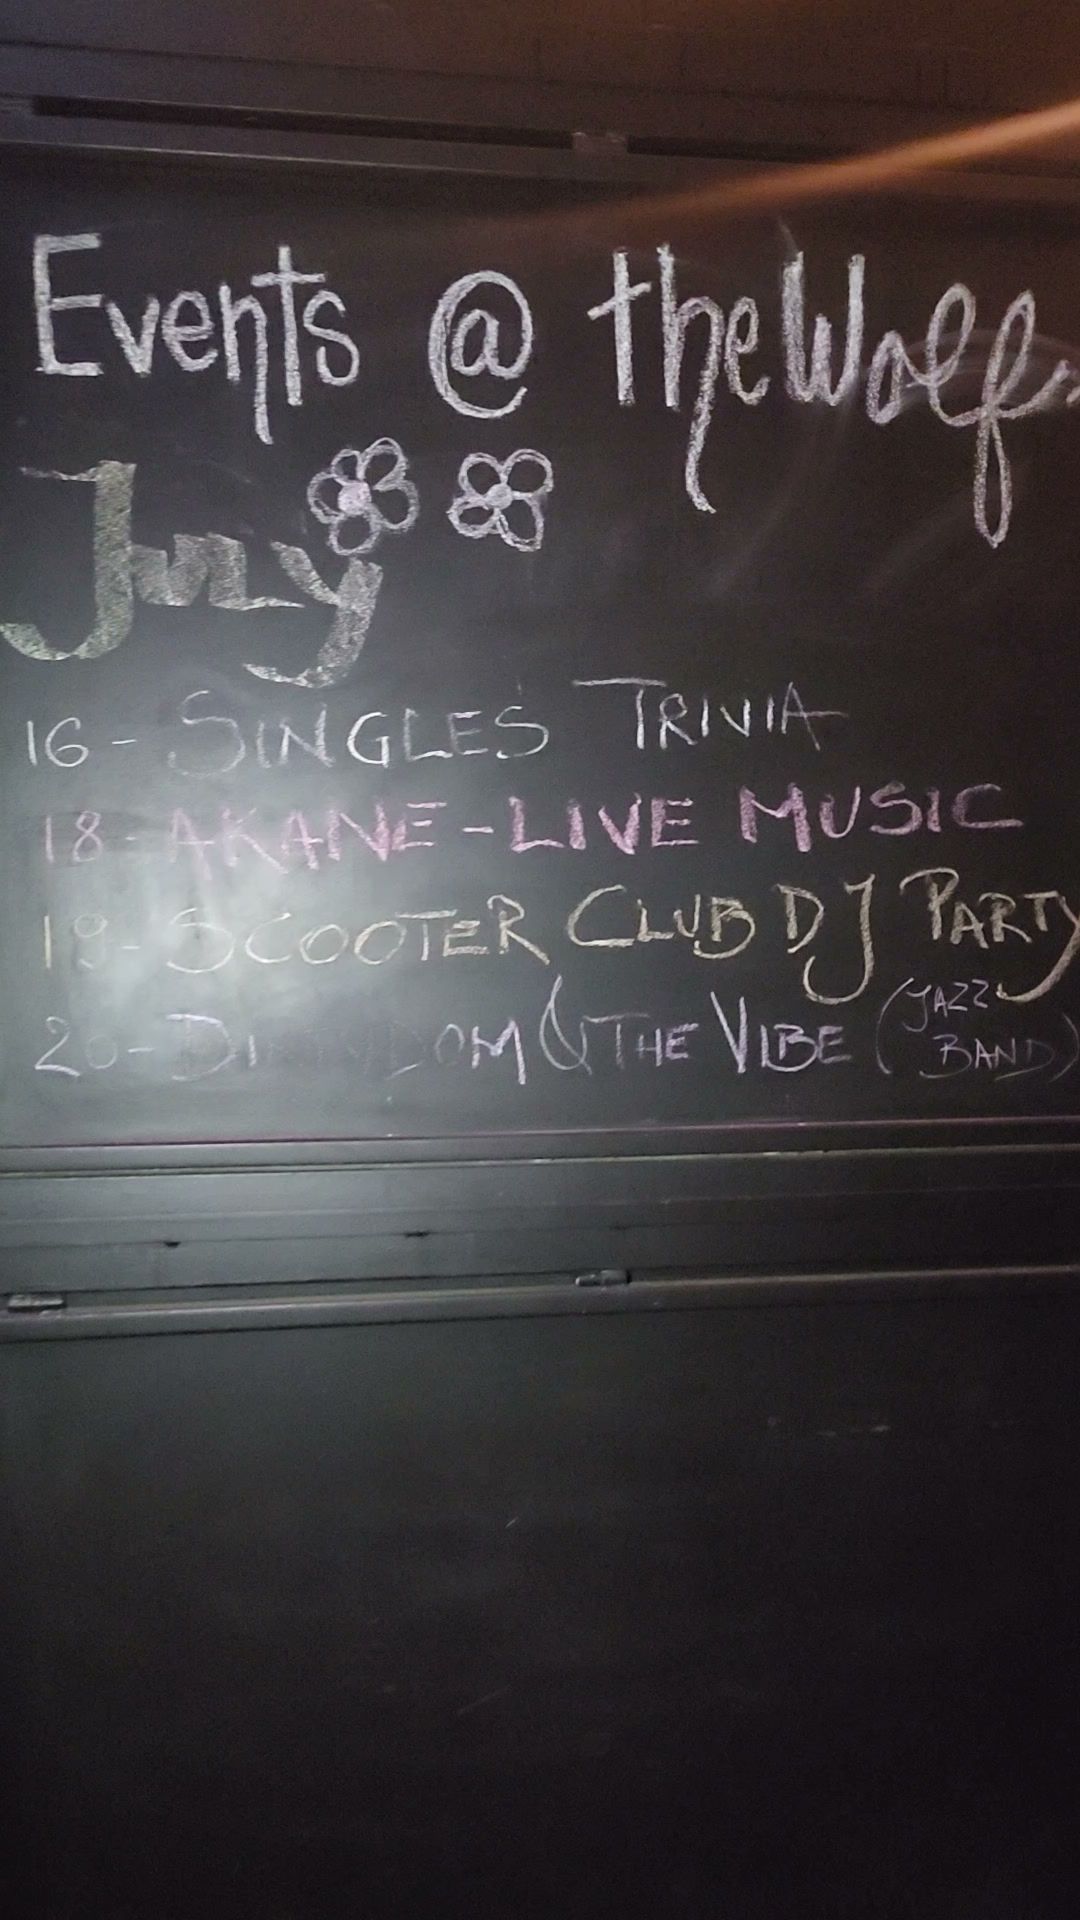 Events @ the Wolf
July
16 - SINGLES TRIVIA
18 - AKANE - LIVE MUSIC
19 - SCOOTER CLUB DJ PARTY
20 - DIRTY DOM & THE VIBE (JAZZ BAND)